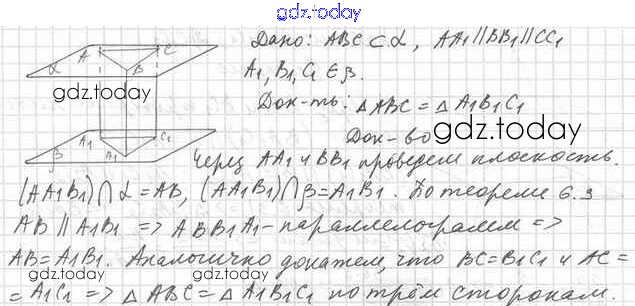 gdz.today
Дано: ABC ⊂ α, AA1 || BB1 || CC1
A1, B1, C1 ∈ β.
gdz.today
Док-ть: △ABC = △A1B1C1
Док-во
gdz.today
A C B α
A1 C1 B1 β
Через AA1 и BB1 проведем плоскость.
(AA1B1) ∩ α = AB, (AA1B1) ∩ β = A1B1. По теореме 6.3
AB || A1B1 => ABB1A1 - параллелограмм =>
AB = A1B1. Аналогично докажем, что BC = B1C1 и AC =
gdz.today
gdz.today
= A1C1 => △ABC = △A1B1C1 по трём сторонам.